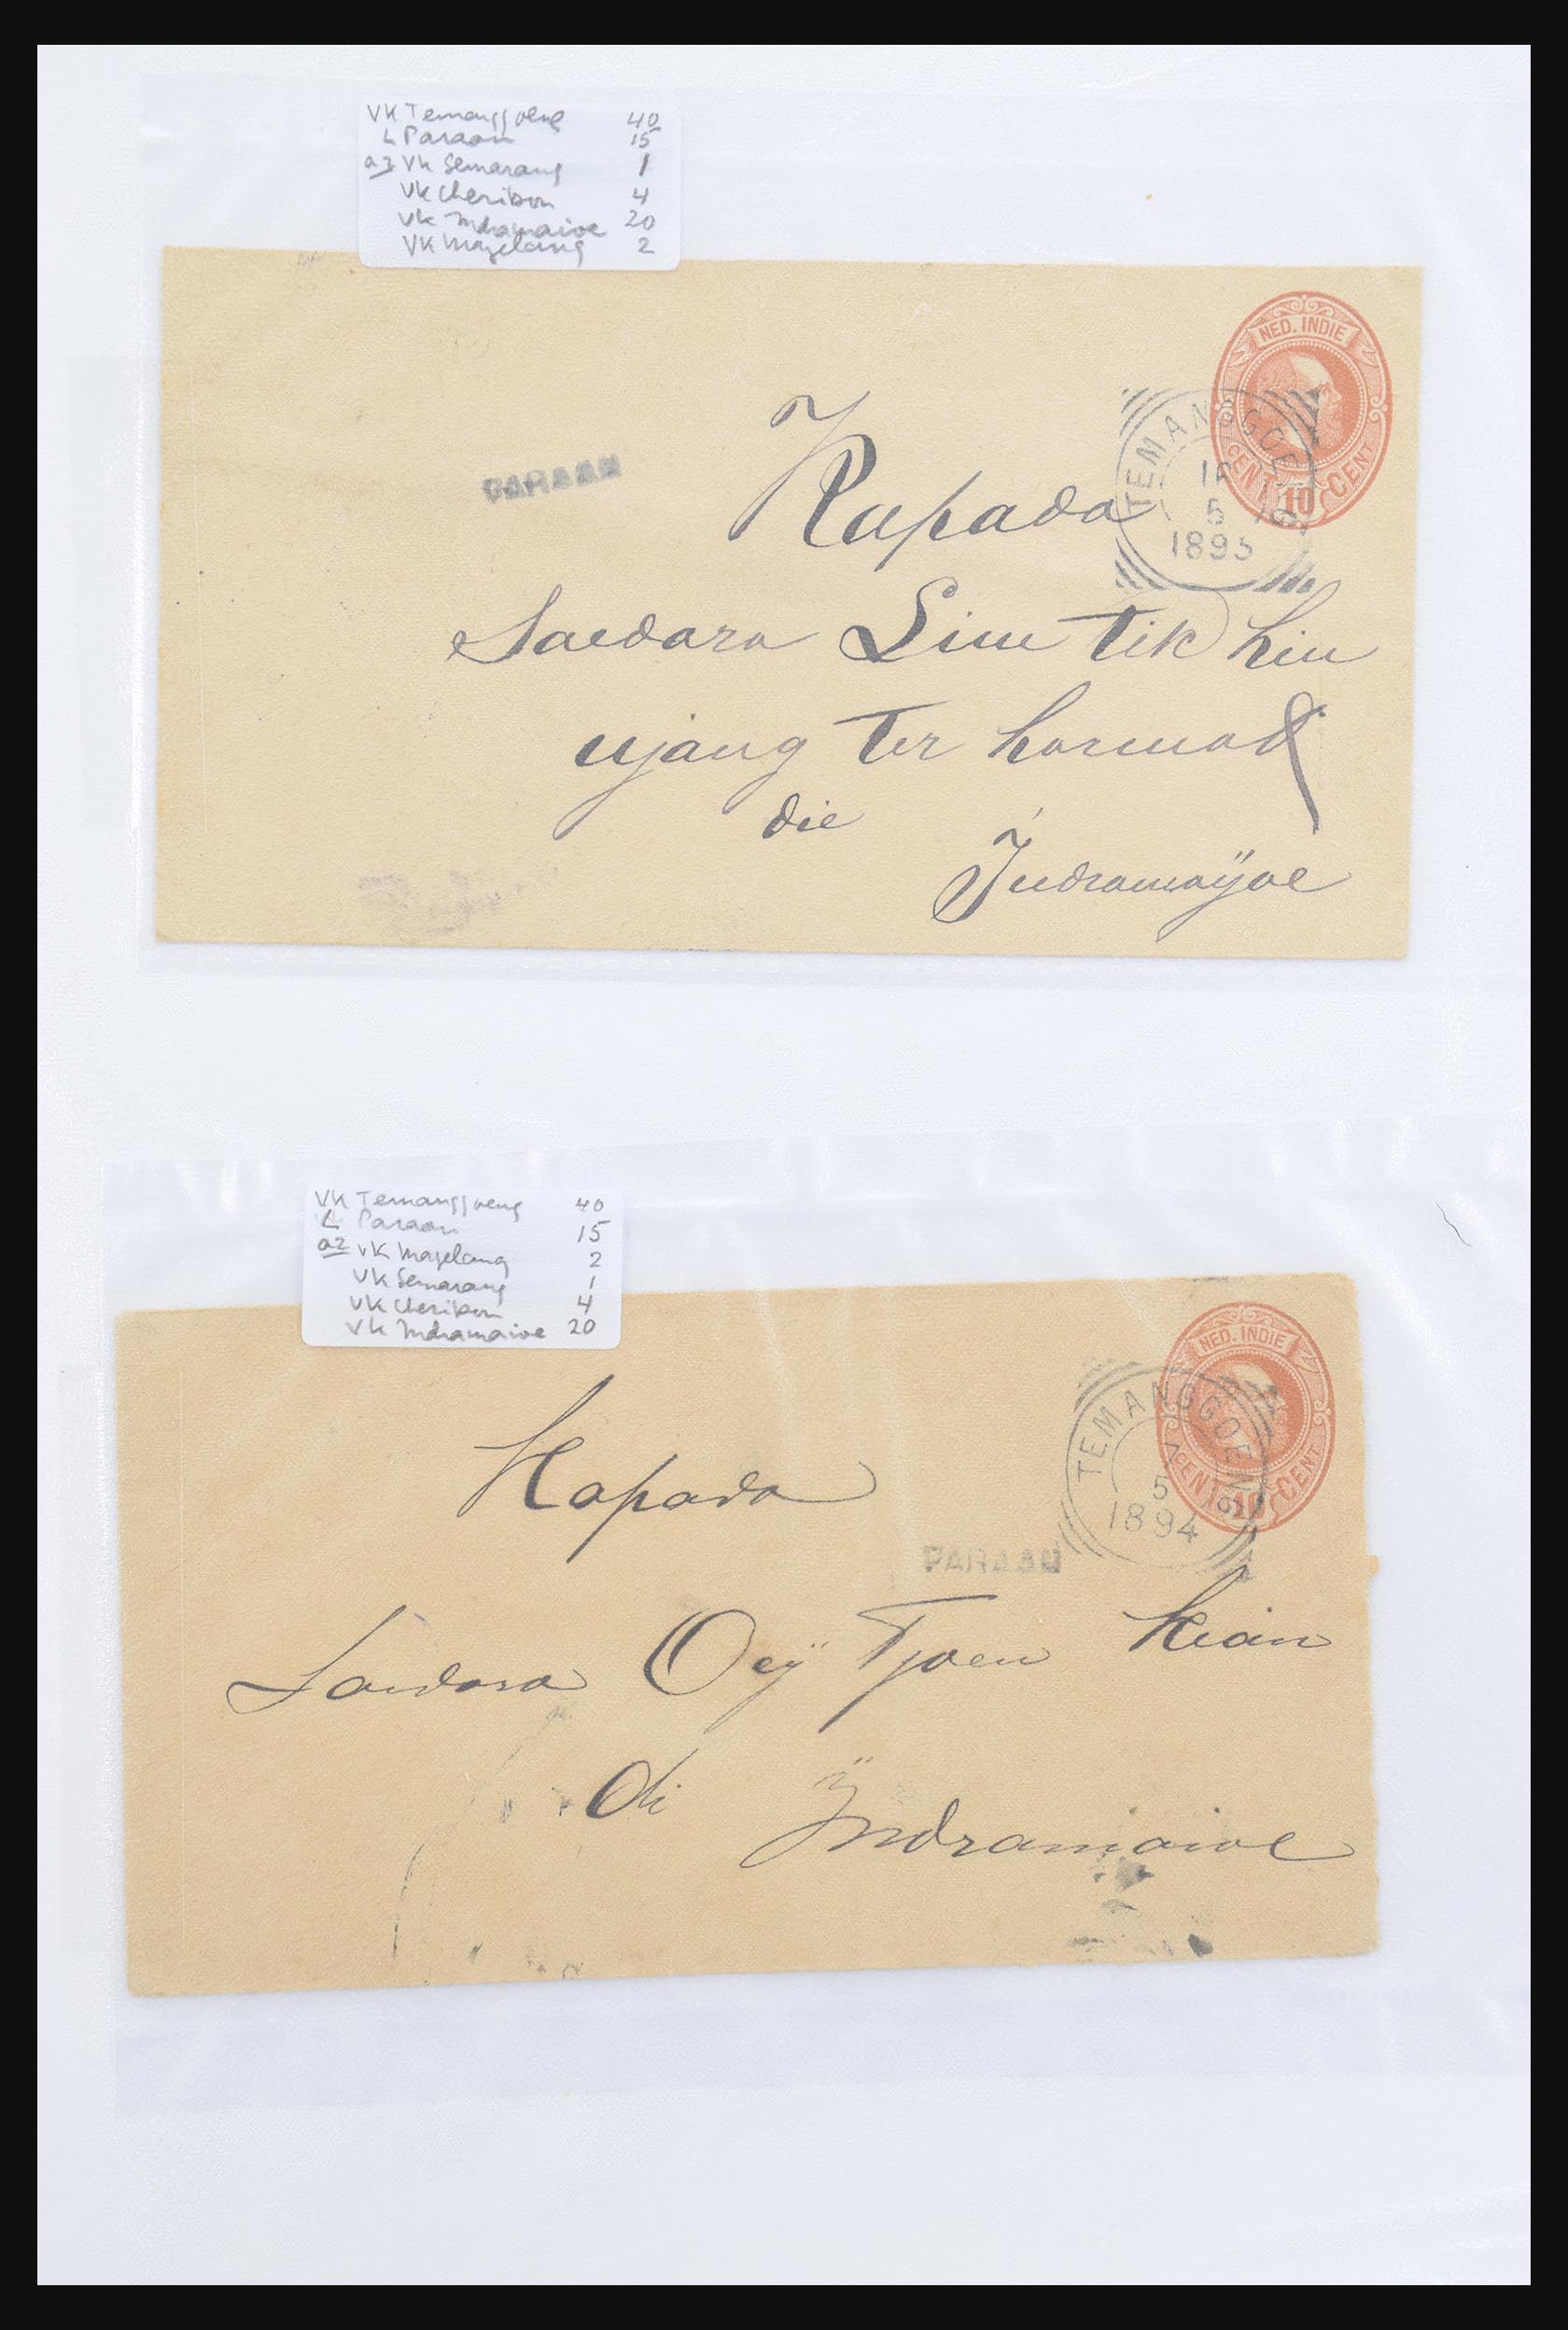 VK Temanggoeng 40
L Paraan 15
az VK Semarang 1
VK Cheribon 4
VK Indramaioe 20
VK Magelang 2
NED. INDIE
CENT 10 CENT
TEMANGGOENG
5
1893
PARAAN
Kapada
Saedara Lim Tik hin
njang Ter hormad
die
Indramaÿoe
VK Temanggoeng 40
L Paraan 15
az VK Magelang 2
VK Semarang 1
VK Cheribon 4
VK Indramaioe 20
NED. INDIE
CENT 10 CENT
TEMANGGOENG
7
5
1894
Kapada
PARAAN
Saudara Oeÿ Tjoen Kian
di Indramaioe